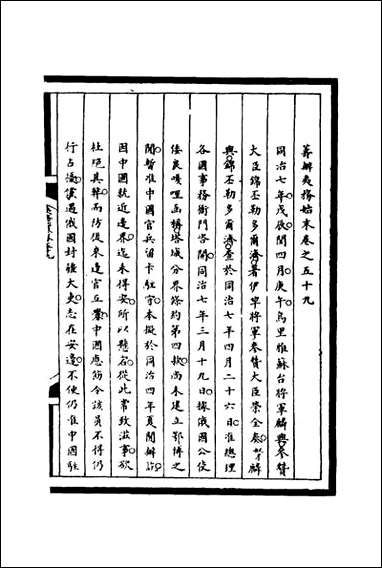 籌辦夷務始末卷之五十九
同治七年戊辰閏四月庚午烏里雅蘇台將軍麟興參贊
大臣錦丕勒多爾濟署伊犂將軍參贊大臣榮全奏麟
興錦丕勒多爾濟查於同治七年四月二十六日准總理
各國事務衙門咨開同治七年三月十九日據俄國公使
倭良嘎哩函稱塔城分界條約第四款尚未建立鄂博之
閒暫准中國官兵留卡駐守本擬於同治四年夏閒辦
因中國就近邊界迄未得安所以懸宕從此常致滋事欲
杜絕其弊而防後來達官立 中國應飭令該員不得仍
行占 俄國封疆大吏志在安邊不便仍准中國駐